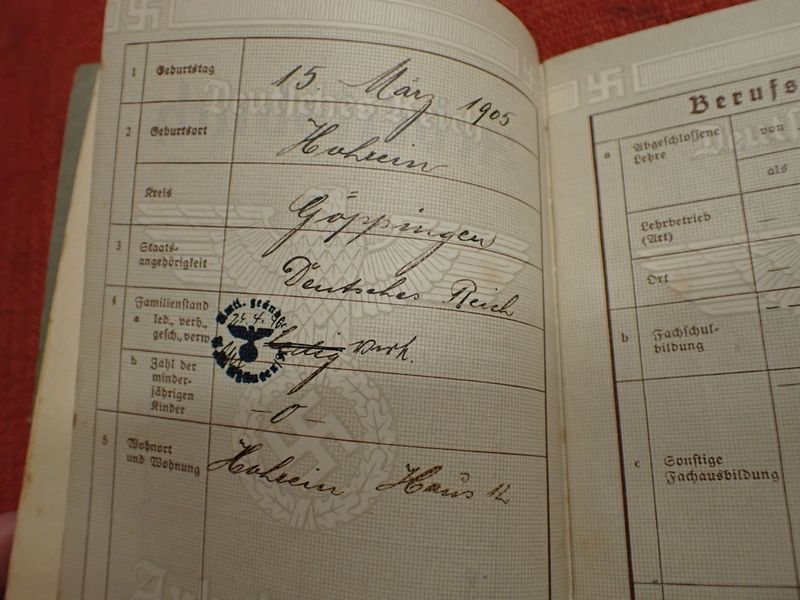 1 Geburtstag 15. März 1905
2 Geburtsort Hohrein
Kreis Göppingen
3 Staats-
angehörigkeit Deutsches Reich
4 Familienstand
a led., verh.,
gesch., verw. ledig verh.
Amtl. geänd.
24.4.40
b Zahl der
minder-
jährigen
Kinder -0-
5 Wohnort
und Wohnung Hohrein Haus 12
Deutsches Reich
Berufs
a Abgeschlossene
Lehre
von
als
Lehrbetrieb
(Art)
Ort
b Fachschul-
bildung
c Sonstige
Fachausbildung